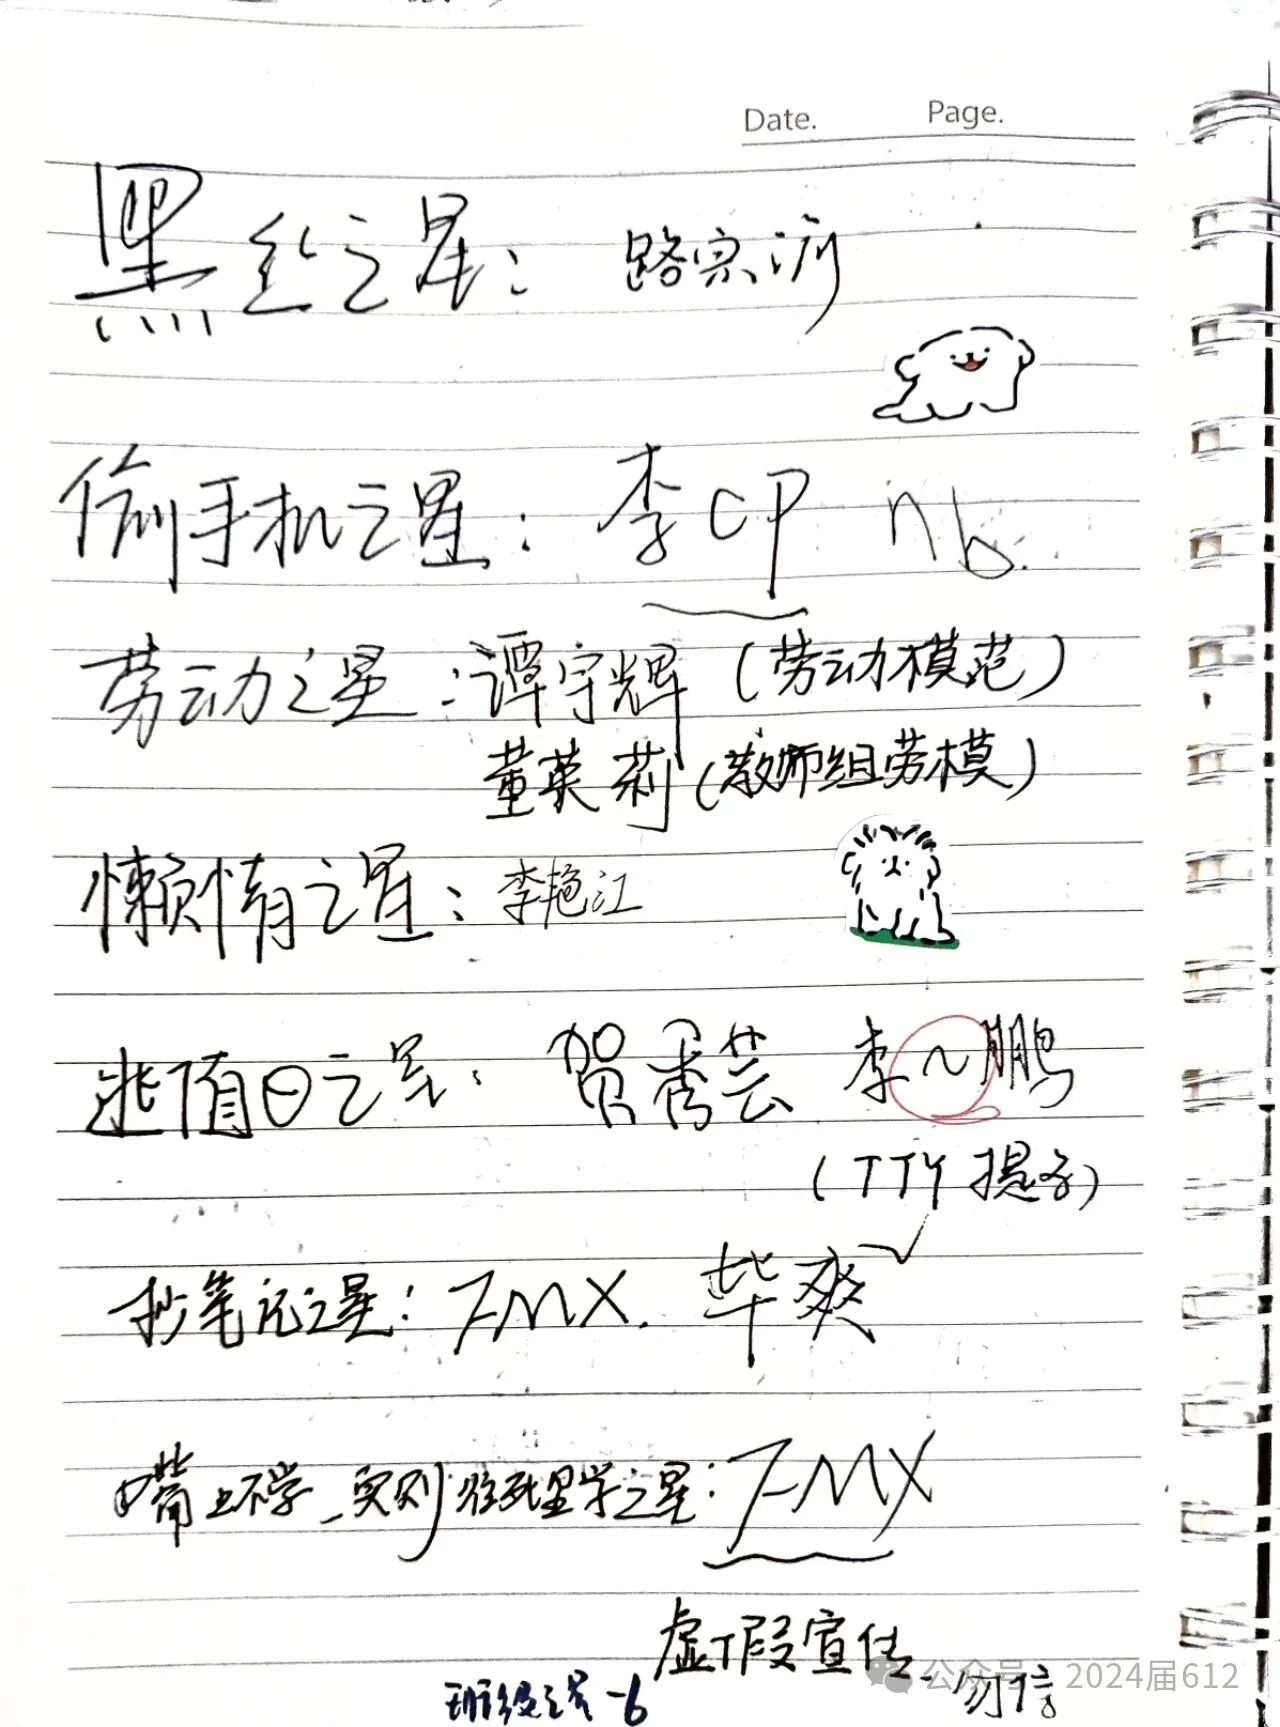 Date. Page.
黑丝之星： 路宗沂
偷手机之星： 李CP nb.
劳动之星：谭宇辉（劳动模范）
董英莉（教师组劳模）
懒惰之星：李艳江
逃值日之星：贺秀芸 李~鹏
（TTY提名）
抄笔记之星：FMX. 毕爽
嘴上不学，实则往死里学之星：FMX
虚假宣传，勿信
班级之星-6
公众号 2024届612